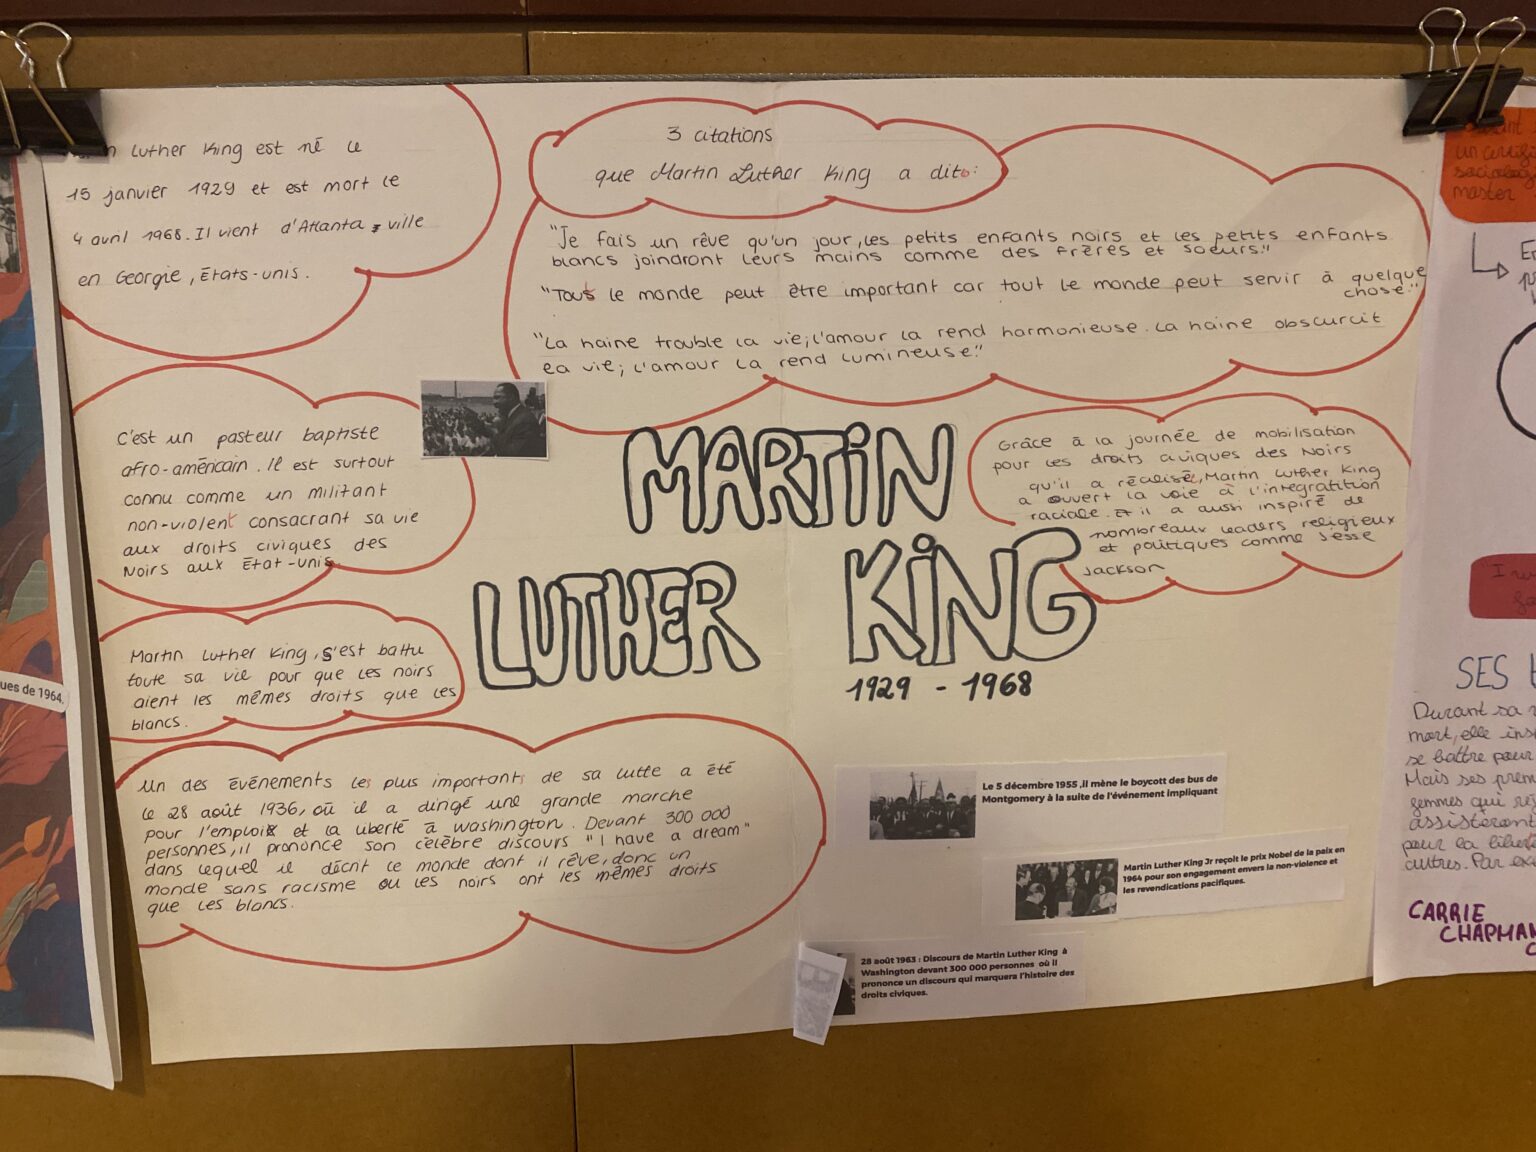 Luther King est né le
15 janvier 1929 et est mort le
4 avril 1968. Il vient d'Atlanta, ville
en Georgie, États-unis.
3 citations
que Martin Luther King a dit:
"Je fais un rêve qu'un jour, les petits enfants noirs et les petits enfants
blancs joindront leurs mains comme des frères et soeurs."
"Tout le monde peut être important car tout le monde peut servir à quelque
chose."
"La haine trouble la vie; l'amour la rend harmonieuse. La haine obscurcit
la vie; l'amour la rend lumineuse."
C'est un pasteur baptiste
afro-américain. Il est surtout
connu comme un militant
non-violent consacrant sa vie
aux droits civiques des
Noirs aux État-unis.
Martin Luther King, s'est battu
toute sa vie pour que les noirs
aient les mêmes droits que les
blancs.
Un des événements les plus importants de sa lutte a été
le 28 août 1936, où il a dirigé une grande marche
pour l'emploi et la liberté à Washington. Devant 300 000
personnes, il prononce son célèbre discours "I have a dream"
dans lequel il décrit le monde dont il rêve, donc un
monde sans racisme ou les noirs ont les mêmes droits
que les blancs.
MARTIN
LUTHER KING
1929 - 1968
Grâce à la journée de mobilisation
pour les droits civiques des Noirs
qu'il a réalisé, Martin Luther King
a ouvert la voie à l'integratition
raciale. Et il a aussi inspiré de
nombreaux leaders religieux
et politiques comme Jesse
Jackson
Le 5 décembre 1955 ,il mène le boycott des bus de
Montgomery à la suite de l'événement impliquant
Martin Luther King Jr reçoit le prix Nobel de la paix en
1964 pour son engagement envers la non-violence et
les revendications pacifiques.
28 août 1963 : Discours de Martin Luther King à
Washington devant 300 000 personnes où il
prononce un discours qui marquera l'histoire des
droits civiques.
ues de 1964.
un
master
SES
Durant sa
mort, elle
se battre pour
Mais ses
femmes qui
assistèrent
pour la
autres. Par
CARRIE